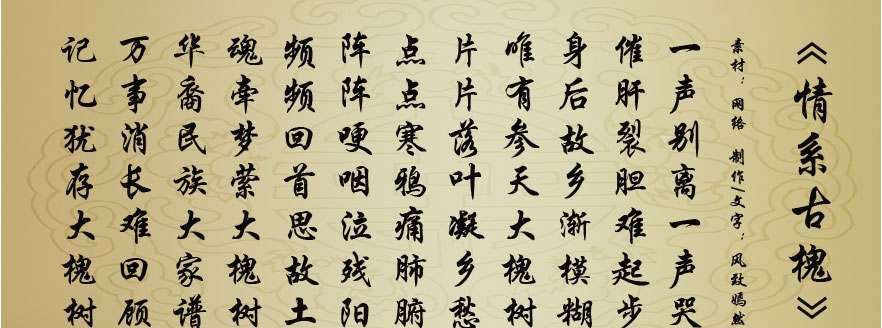 《情系古槐》
素材：网络 制作/文字：风致嫣然
一声别离一声哭
催肝裂胆难起步
身后故乡渐模糊
唯有参天大槐树
片片落叶凝乡愁
点点寒鸦痛肺腑
阵阵哽咽泣残阳
频频回首思故土
魂牵梦萦大槐树
华裔民族大家谱
万事消长难回顾
记忆犹存大槐树